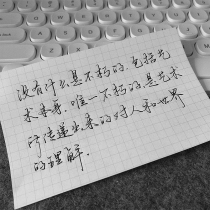 没有什么是不朽的,包括艺
术本身.唯一不朽的,是艺术
所传递出来的对人和世界
的理解.